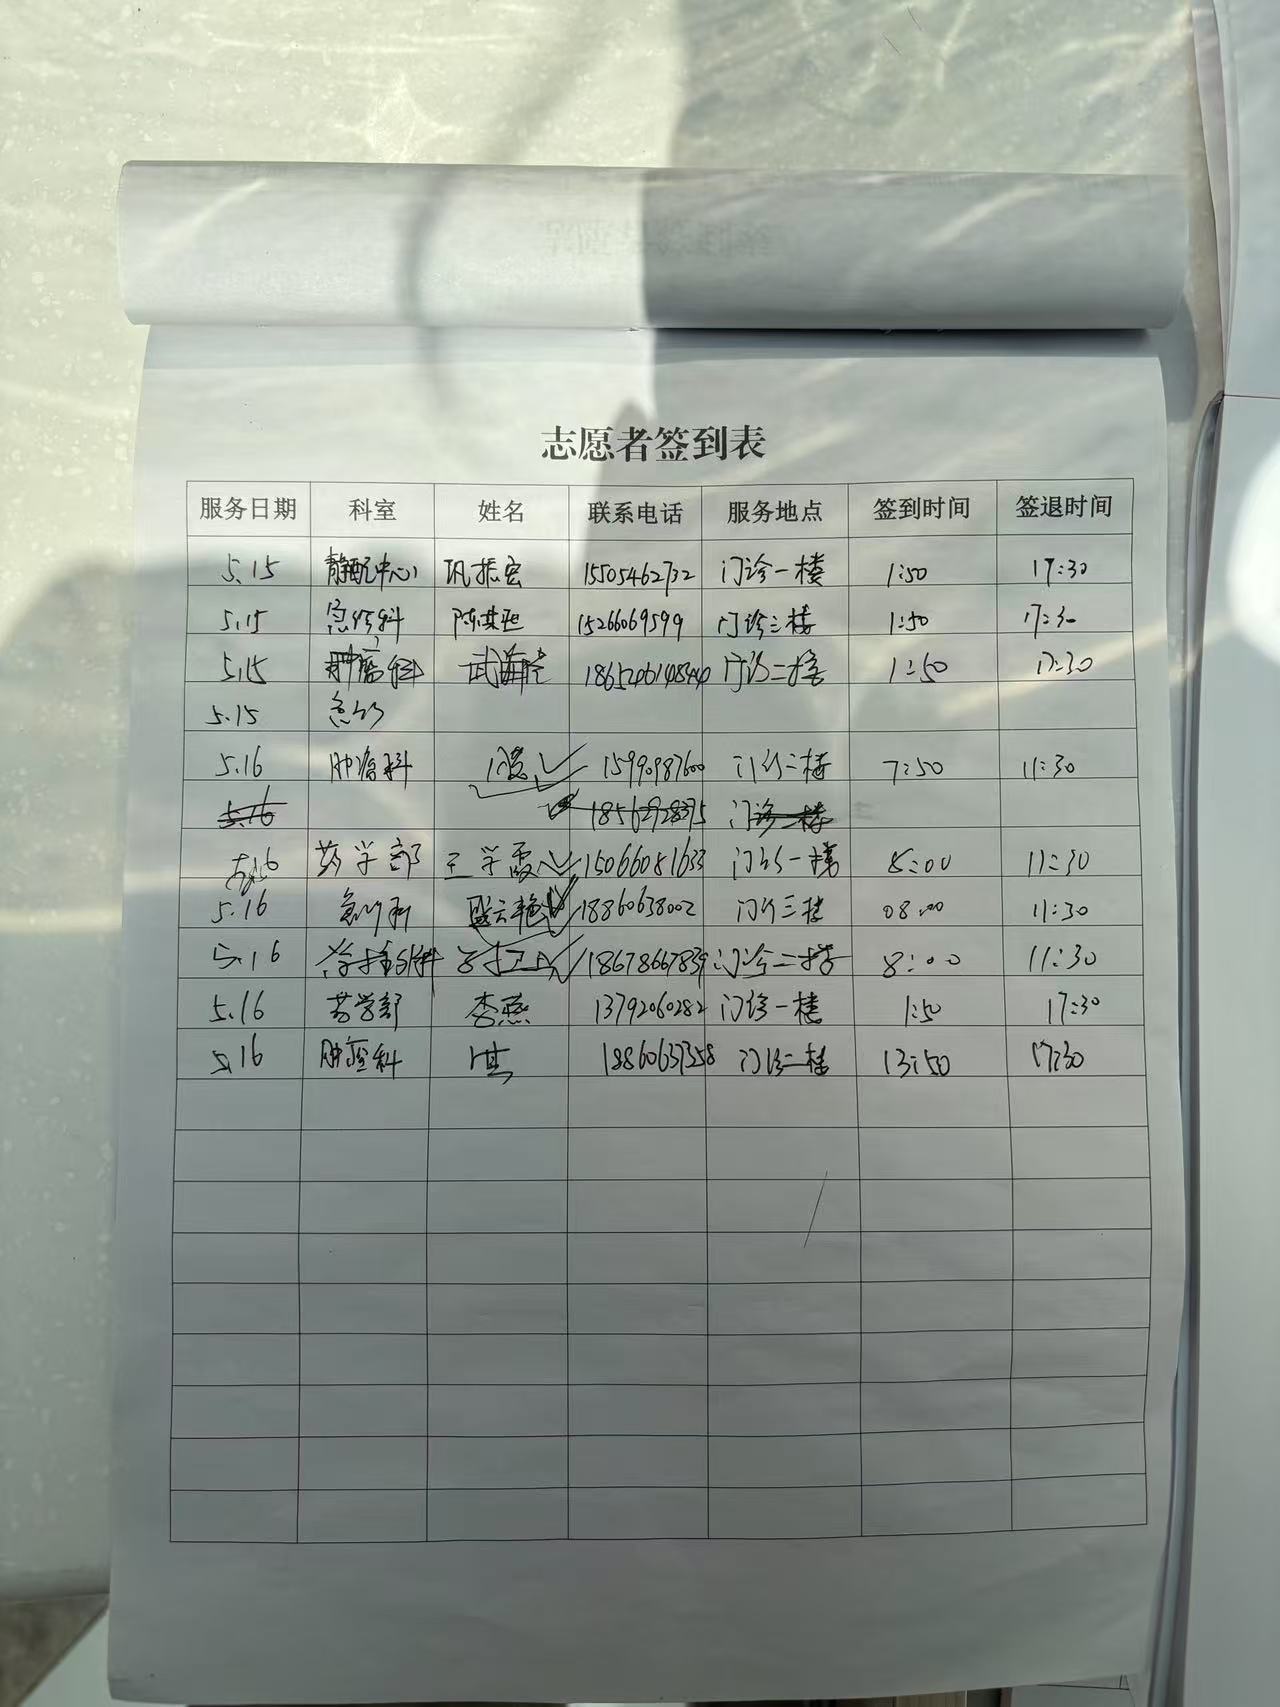 志愿者签到表
服务日期 科室 姓名 联系电话 服务地点 签到时间 签退时间
5.15 静配中心 巩振宏 15505462732 门诊一楼 1:50 17:30
5.15 急诊科 15266069599 门诊三楼 1:50 17:30
5.15 肿瘤科 门诊二楼 1:50 17:30
5.15 急诊
5.16 肿瘤科 15990987600 门诊二楼 7:50 11:30
5.16 门诊二楼
5.16 药学部 王学霞 15066081633 门诊一楼 8:00 11:30
5.16 急诊科 盛云艳 18860638002 门诊三楼 08:00 11:30
5.16 18678667839 门诊二楼 8:00 11:30
5.16 药学部 李燕 13792060282 门诊一楼 1:50 17:30
5.16 肿瘤科 18860637358 门诊二楼 13:50 17:30